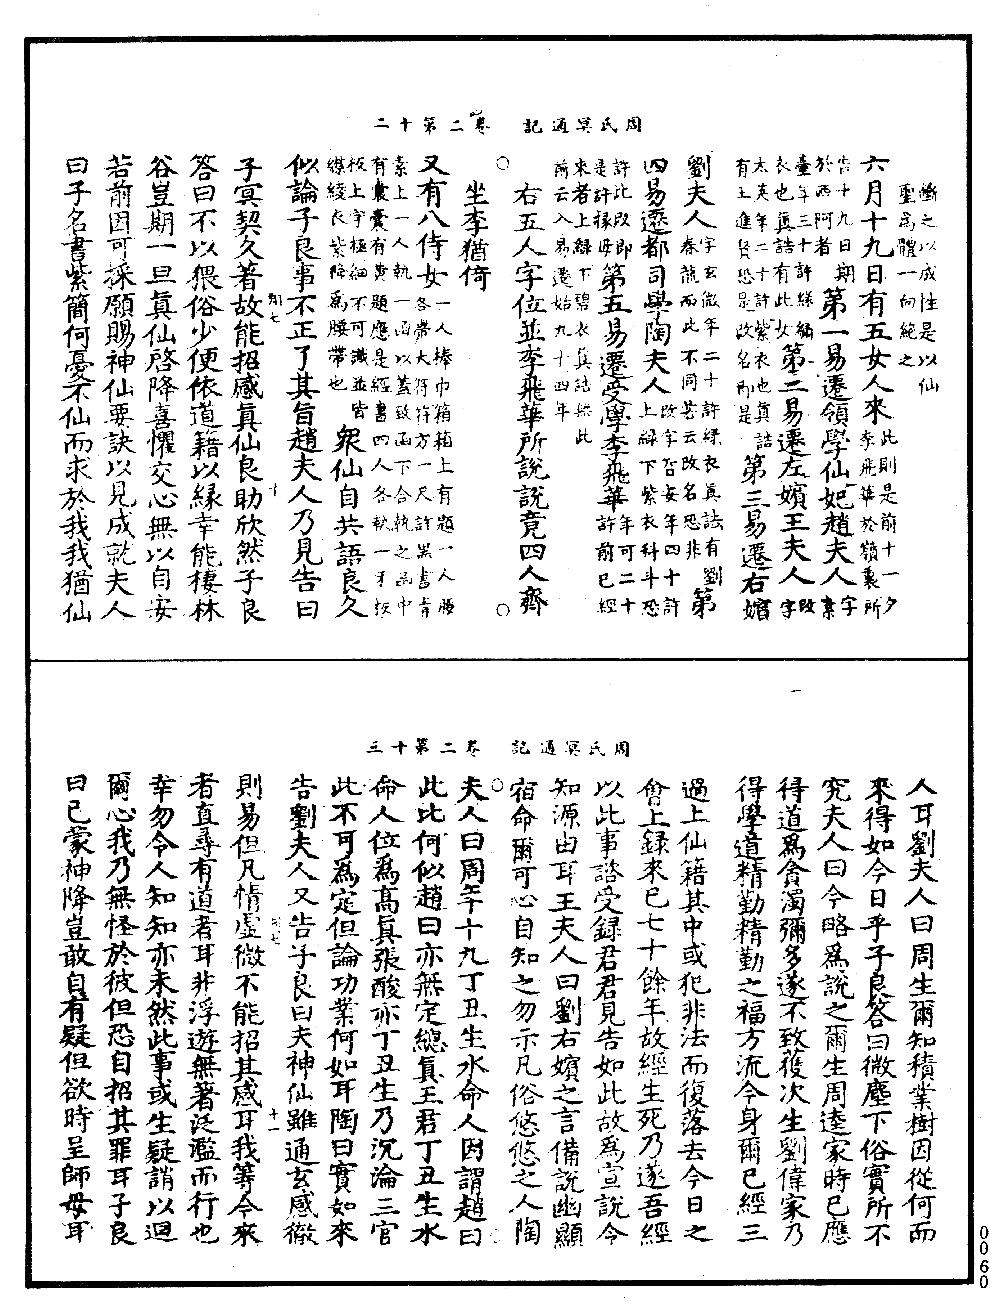 周氏冥通記　卷二第十二
斷之以成性是以仙
聖為體一向絕之
六月十九日有五女人來此則是前十一夕李飛華於嶺裏所
告十九日期於西阿者第一易遷領學仙妃趙夫人字素
臺年三十許綠繡衣也真誥有此女第二易遷左嬪王夫人字改
太英年二十許紫衣也真誥有王進賢恐是改名即是第三易遷右嬪
劉夫人字玄微年二十許綠衣真誥有劉春龍而此不同若云改名恐非第
四易遷都司學陶夫人上綠下紫衣科斗恐改字召安年四十許
許此改即是許祿母第五易遷受學李飛華年可二十許前已經
來者上綠下碧衣真誥無此前云入易遷始九十四年
右五人字位並李飛華所說說竟四人齊
坐李猶倚
又有八侍女一人捧巾箱箱上有題一人腰各帶大符符方一尺許黑書青
素上一人執一函以蓋致函下合執之函中有囊囊有黃題應是經書四人各執一牙按
板上字極細不可識並皆綠綾衣紫絳為腰帶也眾仙自共語良久
似論子良事不正了其旨趙夫人乃見告曰
子冥契久著故能招感真仙良助欣然子良
答曰不以猥俗少便依道籍以緣幸能棲林
谷豈期一旦真仙啓降喜懼交心無以自安
若前因可採願賜神仙要訣以見成就夫人
曰子名書紫簡何憂不仙而求於我我猶仙
周氏冥通記　卷二第十三
人耳劉夫人曰周生爾知積業樹因從何而
來得如今日乎子良答曰微塵下俗實所不
究夫人曰今略為說之爾生周逵家時已應
得道為貪濁彌多遂不致後次生劉偉家乃
得學道精勤精勤之福方流今身爾已經三
過上仙籍其中或犯非法而復落去今日之
會上錄來已七十餘年故經生死乃遂吾經
以此事諮受錄君君見告如此故為宣說令
知源由耳王夫人曰劉右嬪之言備說幽顯
宿命爾可心自知之勿示凡俗悠悠之人陶
夫人曰周年十九丁丑生水命人因謂趙曰
此比何似趙曰亦無定總真王君丁丑生水
命人位為高真張酸亦丁丑生乃沉淪三官
此不可為定但論功業何如耳陶曰實如來
告劉夫人又告子良曰夫神仙雖通玄感徹
則易但凡情虛微不能招其感耳我等今來
者直尋有道者耳非浮遊無著泛濫而行也
幸勿令人知知亦未然此事或生疑誚以迴
爾心我乃無怪於彼但恐自招其罪耳子良
曰已蒙神降豈敢自有疑但欲時呈師母耳
0060